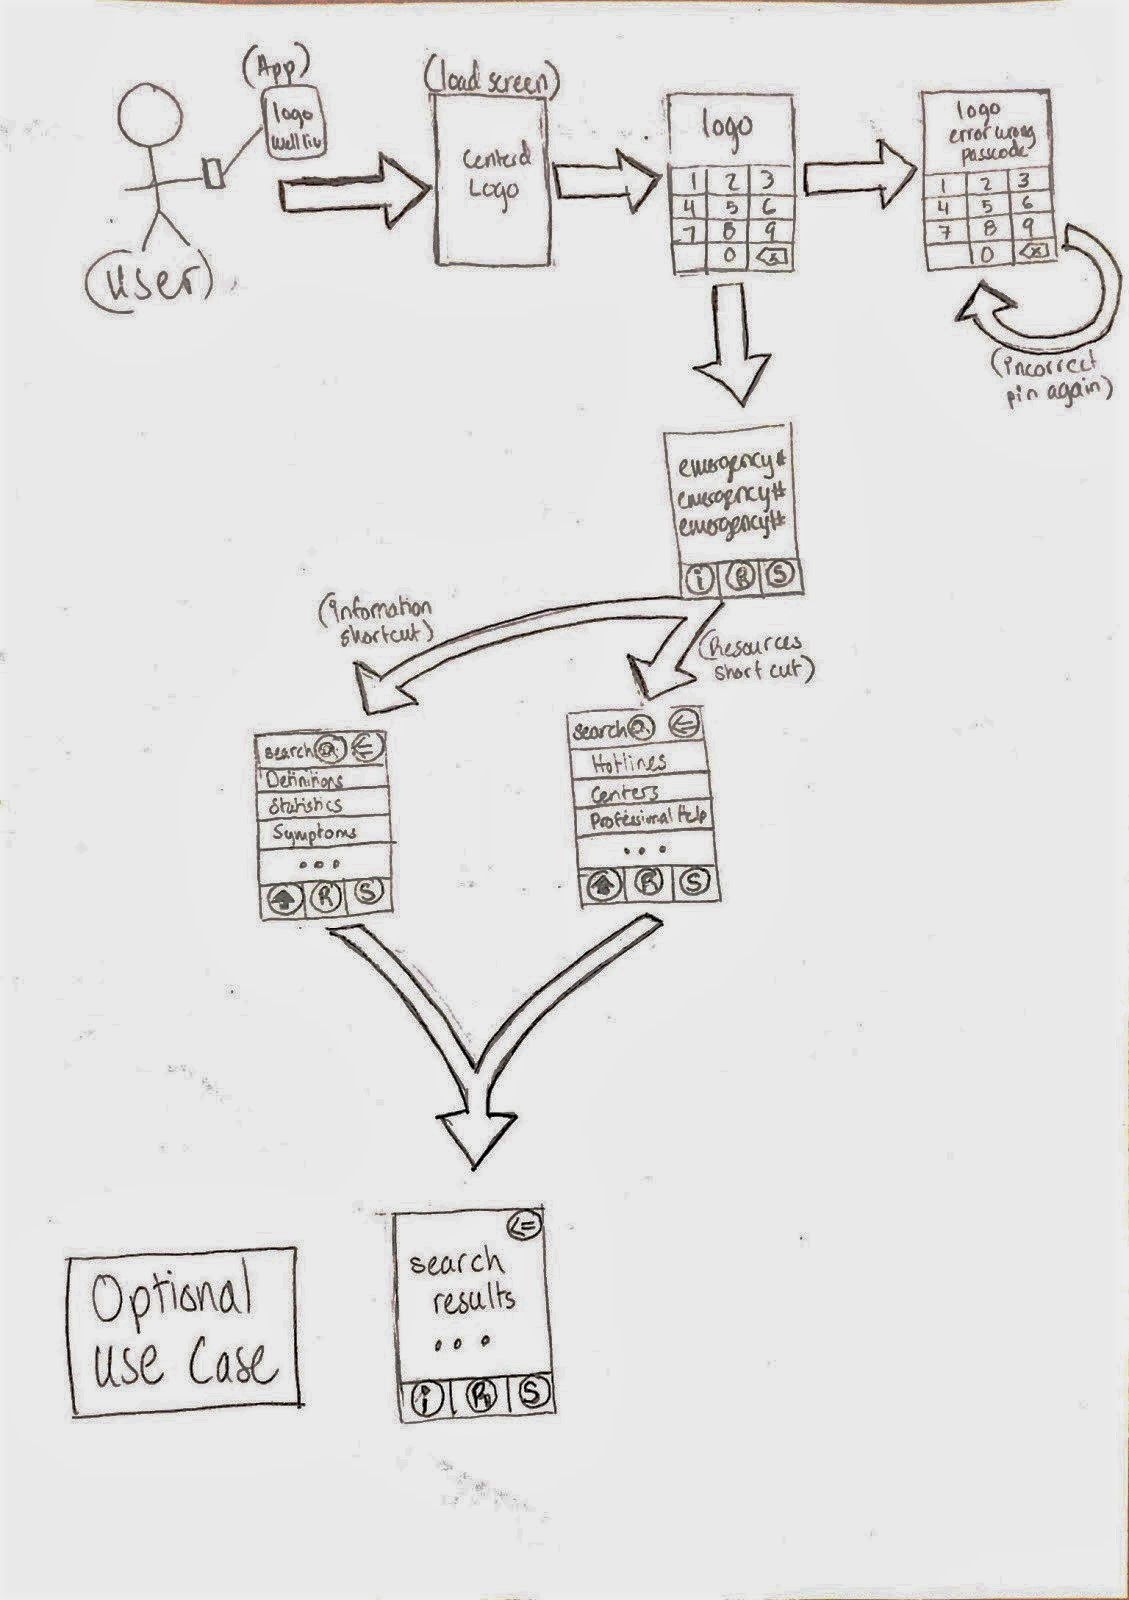 (App)
logo
(User)
(load screen)
Centerd
Logo
logo
1 2 3
4 5 6
7 8 9
0 x
logo
error wrong
passcode
1 2 3
4 5 6
7 8 9
0 x
(incorrect
pin again)
emergency#
emergency#
emergency#
i R S
(Information
shortcut)
(Resources
shortcut)
search
Definitions
Statistics
Symptoms
...
R S
search
Hotlines
Centers
Professional Help
...
R S
search
results
...
i R S
Optional
use Case